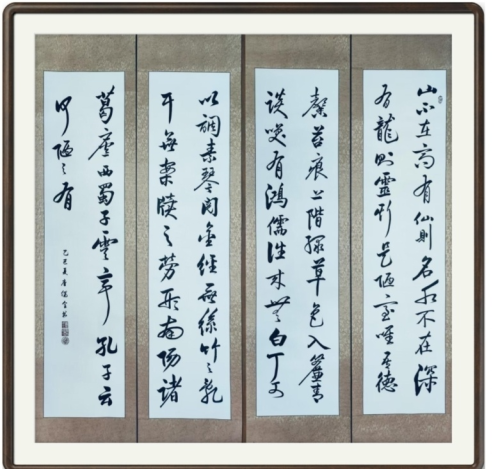 山不在高有仙則名水不在深
有龍則靈斯是陋室唯吾德
馨苔痕上階綠草色入簾青
談笑有鴻儒往來無白丁可
以調素琴閱金經無絲竹之亂
耳無案牘之勞形南陽諸
葛廬西蜀子雲亭孔子云
何陋之有
乙巳夏